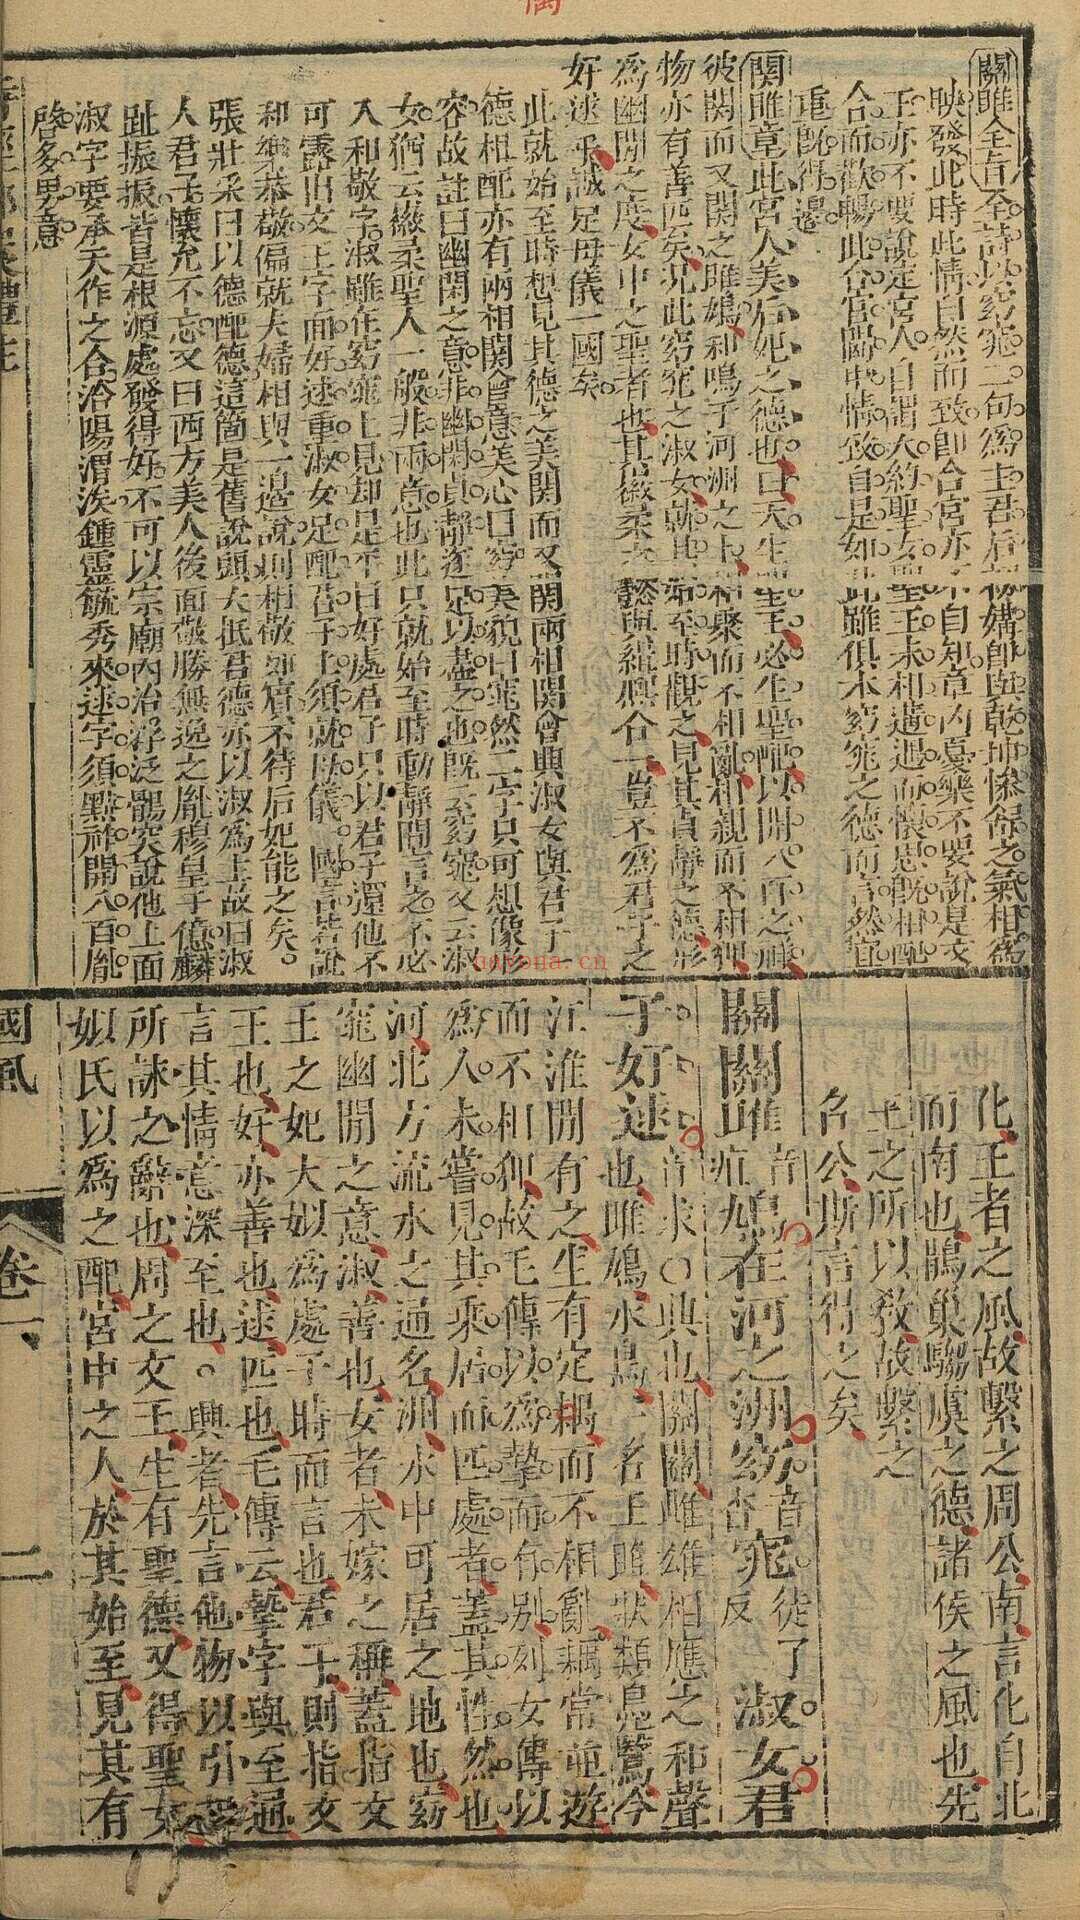 關雎全旨全詩以窈窕二句為主君后初媾即與乾坤慘舒之氣相為
映發此時此情自然而致即合宮亦不自知章內憂樂不要說是文
王亦不要說定宮人自謂大約聖女聖王未相遘遇而懷思既相配
合而歡暢此合宮闈中情致自是如此雖俱本窈窕之德而言然宜
重既得邊
関雎章此宮人美后妃之德也曰天生聖王必生聖配以開八百之
彼関而又関之雎鳩和鳴于河洲之上相聚而不相亂相親而不相狎
物亦有善匹矣况此窈窕之淑女就其始至時觀之見其貞靜之德形
為幽閒之度女中之聖者也其徽柔之懿與緝熙合一豈不為君子之
好逑乎誠足母儀一國矣
此就始至時想見其德之美関而又関兩相関會興淑女與君子一
德相配亦有兩相関會意美心曰窈美貌曰窕然二字只可想像形
容故註曰幽閑之意非幽閑貞靜遂足以盡之也既云窈窕又云淑
女猶云徽柔聖人一般非兩意也此只就始至時動靜間言之不必
入和敬字淑雖在窈窕上見却是平日好處君子只以君子還他不
可露出文王字面好逑重淑女足配君子上須就母儀一國言若註
和樂恭敬偏就夫婦相與一邊說則相敬如賓不待后妃能之矣
張壯采曰以德配德這箇是舊說頭大抵君德亦以淑為主故曰淑
人君子懷允不忘又曰西方美人後面敬勝無逸之胤穆皇于億麟
趾振振皆是根源處發得好不可以宗廟內治浮泛鶻突說他上面
淑字要承天作之合洽陽渭涘鍾靈毓秀來逑字須黙祚開八百胤
啓多男意
化王者之風故繫之周公南言化自北
而南也鵲巢騶虞之德諸侯之風也先
王之所以教故繫之
召公斯言得之矣
關關雎音疽鳩在河之洲窈音杳窕徒了反淑女君
子好逑音求○興也關關雌雄相應之和聲
也雎鳩水鳥一名王雎狀類鳧鷖今
江淮間有之生有定耦而不相亂耦常並遊
而不相狎故毛傳以為摯而有別列女傳以
為人未嘗見其乘居而匹處者蓋其性然也
河北方流水之通名洲水中可居之地也窈
窕幽閒之意淑善也女者未嫁之稱蓋指文
王之妃大姒為處子時而言也君子則指文
王也好亦善也逑匹也毛傳云摯字與至通
言其情意深至也○興者先言他物以引起
所詠之辭也周之文王生有聖德又得聖女
姒氏以為之配宮中之人於其始至見其有
國風
卷一
二